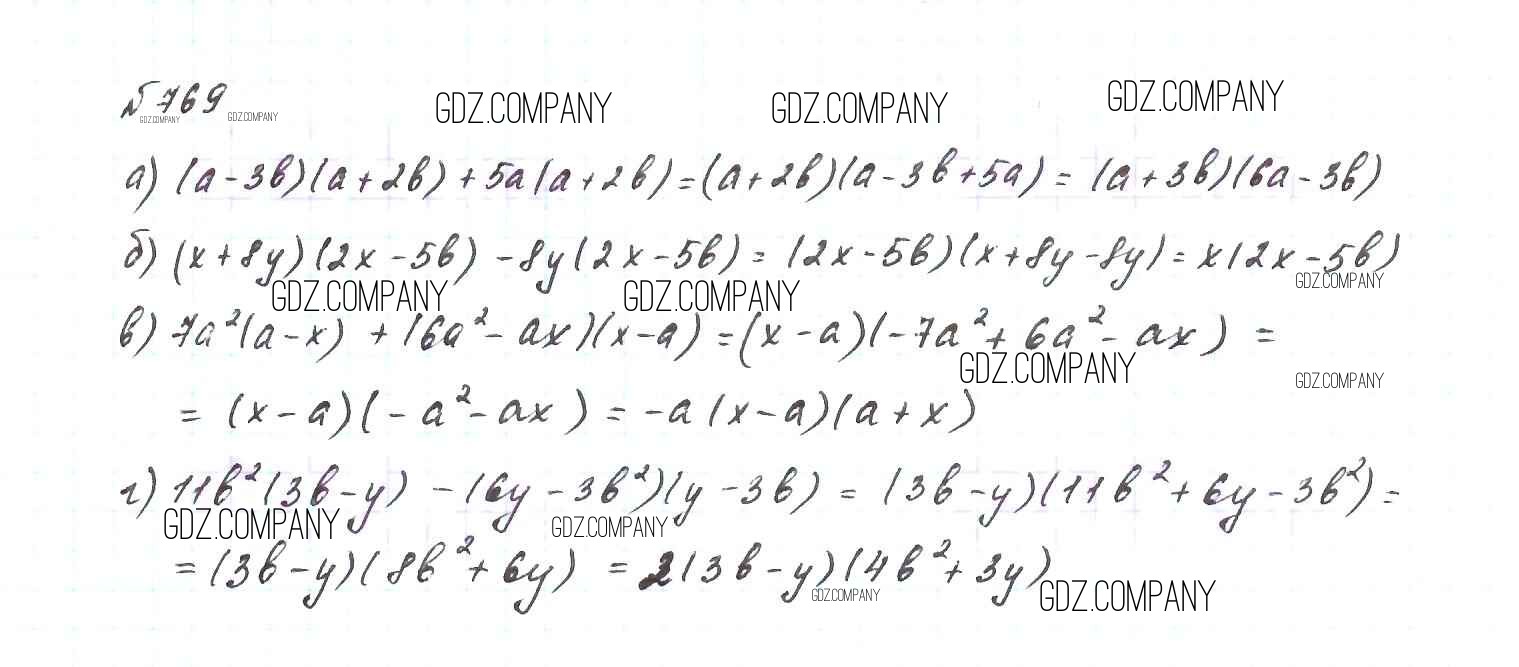 №769
GDZ.COMPANY GDZ.COMPANY GDZ.COMPANY GDZ.COMPANY GDZ.COMPANY
а) (a-3b)(a+2b)+5a(a+2b)=(a+2b)(a-3b+5a)=(a+3b)(6a-3b)
б) (x+8y)(2x-5b)-8y(2x-5b)=(2x-5b)(x+8y-8y)=x(2x-5b)
GDZ.COMPANY GDZ.COMPANY GDZ.COMPANY
в) 7a²(a-x)+(6a²-ax)(x-a)=(x-a)(-7a²+6a²-ax)=
GDZ.COMPANY GDZ.COMPANY
=(x-a)(-a²-ax)=-a(x-a)(a+x)
г) 11b²(3b-y)-(6y-3b²)(y-3b)=(3b-y)(11b²+6y-3b²)=
GDZ.COMPANY GDZ.COMPANY
=(3b-y)(8b²+6y)=2(3b-y)(4b²+3y)
GDZ.COMPANY GDZ.COMPANY